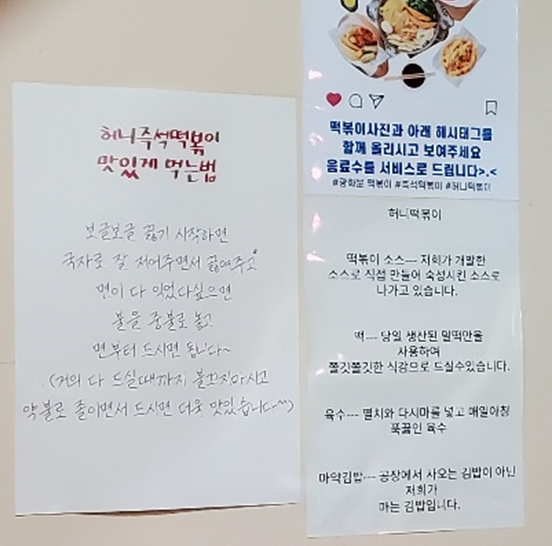 허니즉석떡볶이
맛있게 먹는법
보글보글 끓기 시작하면
국자로 잘 저어주면서 끓여주고
면이 다 익었다싶으면
불을 중불로 놓고
면부터 드시면 됩니다~
(거의 다 드실때까지 불끄지마시고
약불로 졸이면서 드시면 더욱 맛있습니다^^)
떡볶이사진과 아래 해시태그를
함께 올리시고 보여주세요
음료수를 서비스로 드립니다>.<
#광화문 떡볶이 #즉석떡볶이 #허니떡볶이
허니떡볶이
떡볶이 소스--- 저희가 개발한
소스로 직접 만들어 숙성시킨 소스로
나가고 있습니다.
떡--- 당일 생산된 밀떡만을
사용하여
쫄깃쫄깃한 식감으로 드실수있습니다.
육수--- 멸치와 다시마를 넣고 매일아침
푹끓인 육수
마약김밥--- 공장에서 사오는 김밥이 아닌
저희가
마는 김밥입니다.